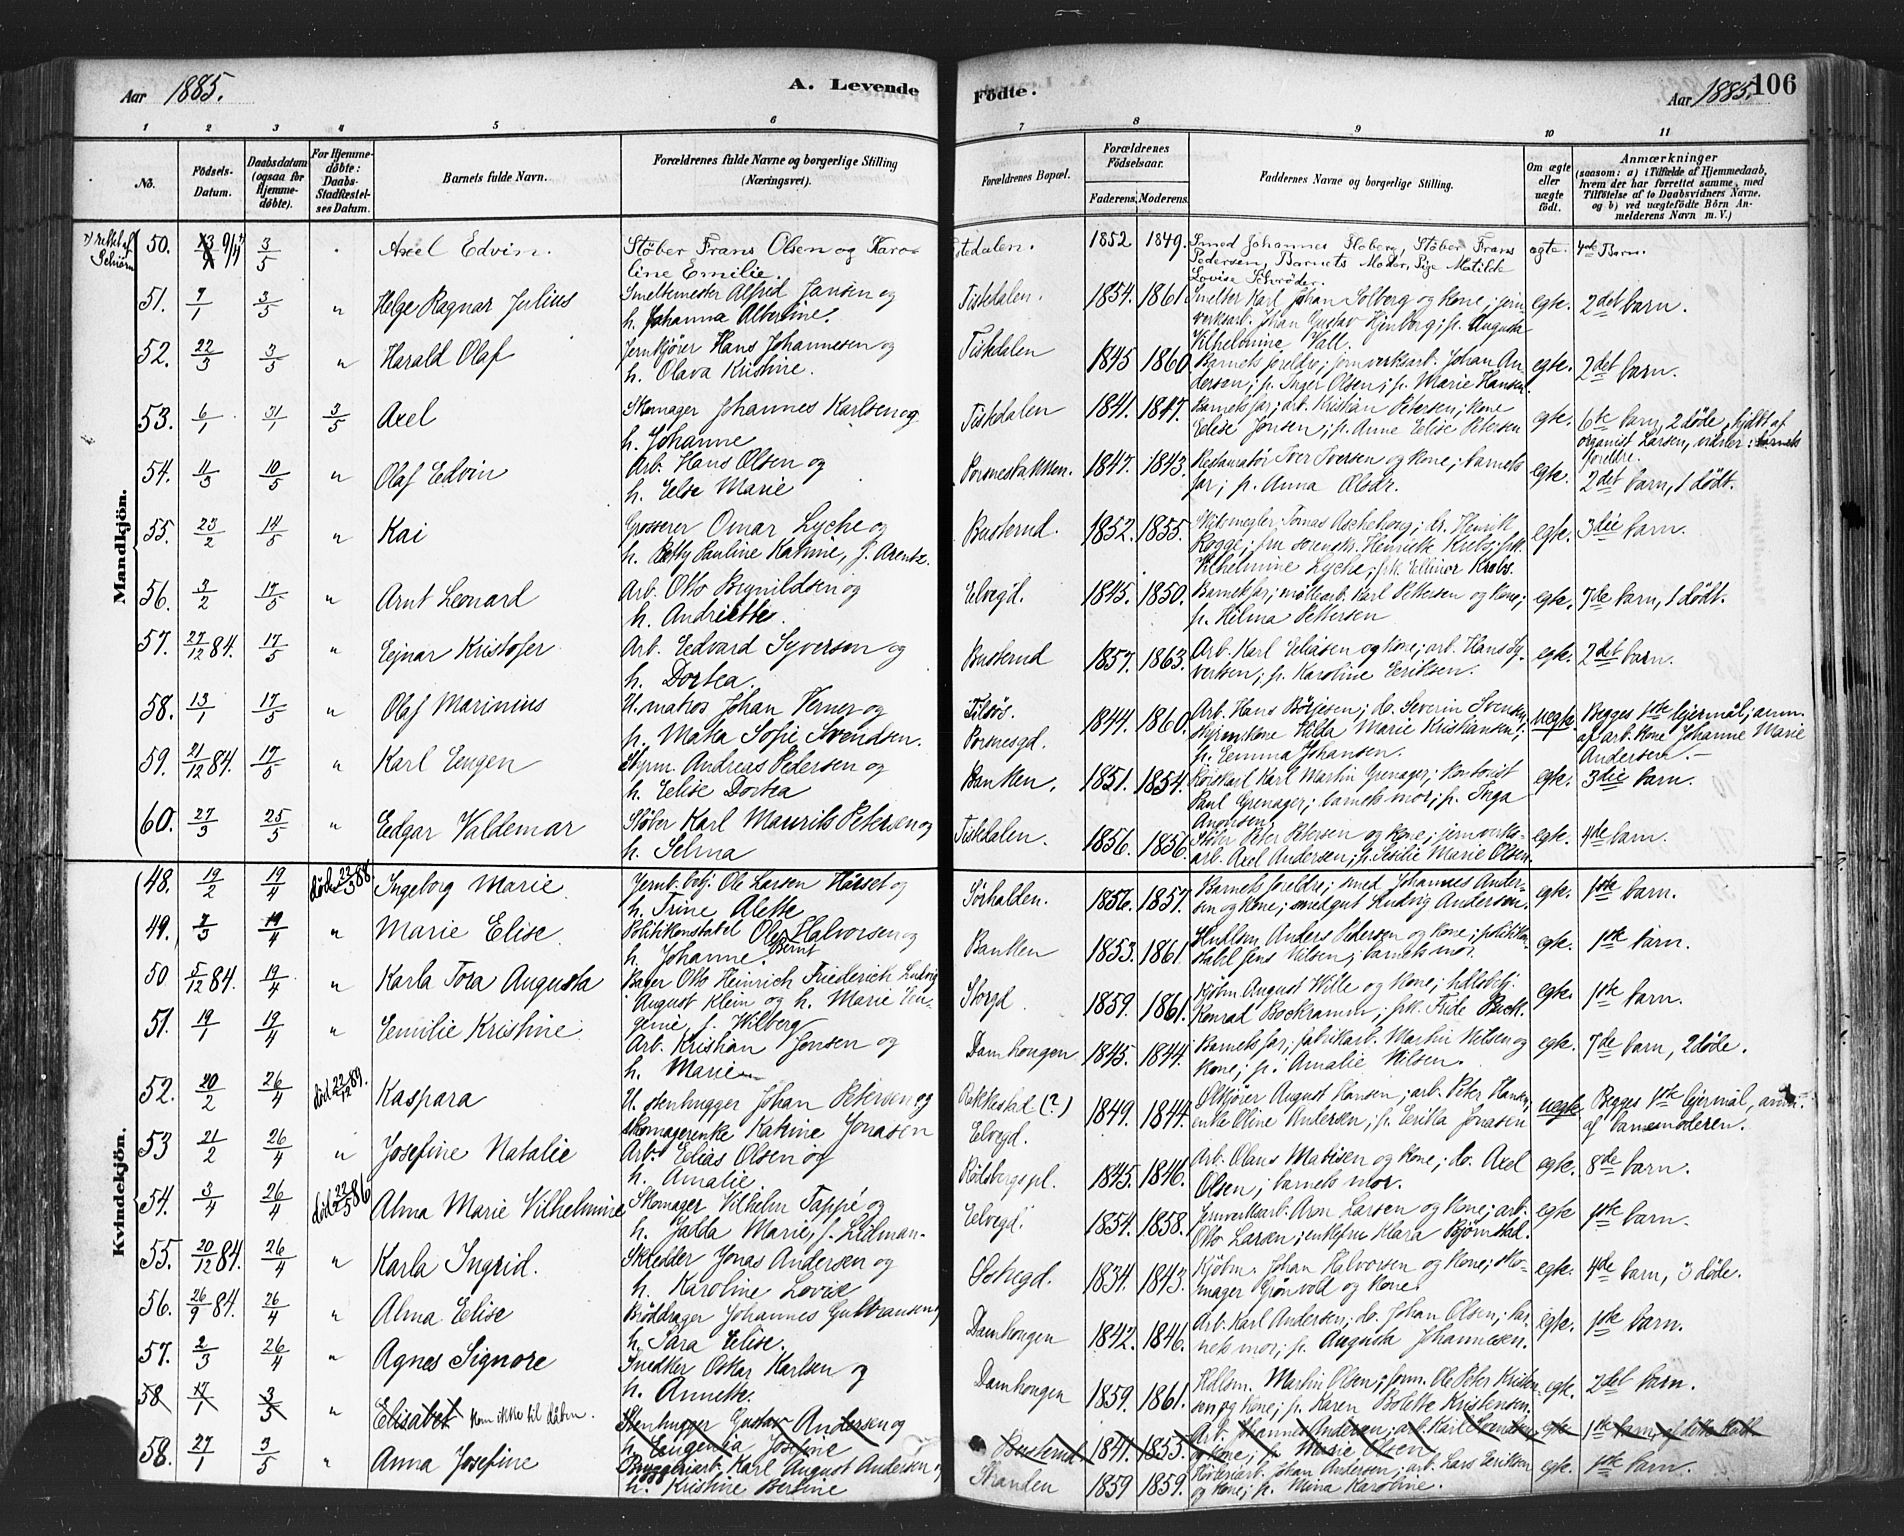 Aar 1885.
A. Levende
Fødte.
Aar 1885.
106
1 2 3 4 5 6 7 8 9 10 11
No.
Fødsels-Datum.
Daabsdatum (ogsaa for Hjemme-døbte).
For Hjemme-døbte: Daabs-Stadfæstel-ses Datum.
Barnets fulde Navn.
Forældrenes fulde Navne og borgerlige Stilling (Næringsvei).
Forældrenes Bopæl.
Forældrenes Fødselsaar.
Faderens. Moderens.
Faddernes Navne og borgerlige Stilling.
Om ægte eller uægte født.
Anmærkninger
(saasom: a) i Tilfælde af Hjemmedaab, hvem der har forrettet samme, med Tilføielse af to Daabsvidners Navne. og b) ved uægtefødte Børn An-melderens Navn m. V.)
Mandkjön.
50. 3/5 Axel Edvin. Støber Frans Olsen og Karo-line Emilie. 1852 1849. Smed Johannes Floberg, Støber Frans Pedersen, Barnets Moder, Pige Matilde Lovise Schrøder. ægte. 4de Barn.
51. 7/1 3/5 " Helge Ragnar Julius Smeltemester Alfrid Jansen og h. Johanna Albertine. Tistedalen. 1854. 1861 Smelter Karl Johan Solberg og kone; jern-verksarb. Johan Gustav ; p. Augusta Vilhelmine Vall. egte. 2det barn.
52. 22/3 3/5 " Harald Olaf Jernkjører Hans Johannesen og h. Olava Kristine. Tistedalen 1845 1860 Barnets foreldre; jernverksarb. Johan An-dersen; p. Inger Olsen; p. Marie Hansen egte. 2det barn.
53. 6/1 31/1 3/5 Axel Skomager Johannes Karlsen og h. Johanne Tistedalen 1841. 1847. Barnets far; arb. Kristian Petersen; kone Elise Jensen; p. Anne Elise Petersen egte. 6te barn, 2 døde, hjdbt af organist Larsen, vidner: barnets foreldre.
54. 11/3 10/5 " Olaf Edvin Arb. Hans Olsen og h. Else Marie Porsnesbakken. 1847. 1843. Restauratør Iver Iversen og kone; barnets far; p. Anna Oledr. egte. 2det barn, 1 dødt.
55. 23/2 14/5 " Kai Grosserer Omar Lyche og h. Betty Pauline Katrine, f. Arentz. Busterud. 1852. 1855. Tomas Aschehoug; dr. Henrik Rogge; fru sorenskr. Henriette Krebs; frk. Vilhelmine Lyche; frk. Elinor Krebs. egte. 3die barn.
56. 3/2 17/5 " Arnt Leonard Arb. Otto Brynildsen og h. Andriette. Elvegd. 1845. 1850. Barnets far; møllearb. Karl Pettersen og kone; p. Hilma Pettersen egte. 7de barn, 1 dødt.
57. 27/12 84. 17/5 " Ejnar Kristofer Arb. Edvard Syversen og h. Dortea. Busterud 1857. 1863. Arb. Karl Eliasen og kone; arb. Hans Sy-versen; p. Karoline Eriksen. egte. 2det barn.
58. 13/1 17/5 " Olaf Marinius U. matros Johan Verner og p. Matea Sofie Svendsen. Porsnesgd. 1844. 1860. Arb. Hans Børjesen; do. Severin Svensen; styrm.kone Hilda Marie Kristiansen; p. Emma Johansen. uegte. Begges 1ste lejermål; anm. af arb. kone Johanne Marie Andersen.
59. 21/12 84. 17/5 " Karl Eugen Styrm. Andreas Pedersen og h. Elise Dortea Banken. 1851. 1854. Karl Martin Grenager; kontorist Paul Grenager; barnets mor; p. Inga Andersen egte. 3die barn.
60. 27/3 25/5 " Edgar Valdemar Støber Karl Maurits Petersen og h. Selma Tistedalen. 1856. 1856. Støber Peter Petersen og kone; jernverks-arb. Axel Andersen; p. Cesilie Marie Olsen. egte. 4de barn.
Kvindekjön.
48. 19/2 19/4 død 22/3 88. Ingeborg Marie Jernb. betj. Ole Larsen Harset og h. Trine Alette Sørhalden. 1856. 1857. Barnets foreldre; smed Johannes Ander-sen og kone; smedgut Ludvig Andersen. egte. 1ste barn.
49. 7/3 19/4 " Marie Elise. Politikonstabel Ole Bernt Halvorsen og h. Johanne. Banken 1853. 1861. Anders Pedersen og kone; politikon-stabel Jens Nilsen; barnets mor. egte. 1ste barn.
50 5/12 84. 19/4 " Karla Tora Augusta Bager Otto Heinrich Friederich Ludvig August Klein og h. Marie Eu-genie, f. Wilberg Storgd. 1859. 1861. Kjøbm August Wille og kone; hdlsbetj. Konrad Bockramm; frk. Frida Buck. egte. 1ste barn.
51. 19/1 19/4 " Emilie Kristine Arb. Kristian Jensen og h. Marie Damhougen 1845. 1844. Barnets far; fabrikarb. Martin Nilsen og kone; p. Amalie Nilsen. egte. 7de barn, 2 døde.
52. 20/2 26/4 død 22/12 89. Kaspara U. stenhugger Johan Petersen og skomagerenke Katrine Jonasen Rakkestad (?) Elvegd. 1849. 1844. Ølkjører August Hansen; arb. Peter Hansen; enke Oline Andersen; p. Erikka Jonasen uegte Begges 1ste lejermål, anm. af barnemoderen.
53 21/2 26/4 " Josefine Natalie Arb. Elias Olsen og h. Amalie Rødsbergspl. 1845. 1846. Arb. Olaus Matisen og kone; do. Axel Olsen; barnets mor. egte. 8de barn.
54. 3/4 26/4 død 22/5 86 Alma Marie Vilhelmine Skomager Vilhelm Tappe og h. Jadda Marie, f. Lidman. Elvegd. 1854. 1858. Jernverksarb. Larsen og kone; arb. Otto Larsen; enkefru Klara Bjørnstad. egte 1ste barn.
55. 20/12 84. 26/4 " Karla Ingrid. Skredder Jonas Andersen og h. Karoline Lovise 1834. 1843. Kjøbm. Johan Halvorsen og kone; sko-mager Grønvold og kone egte. 4de barn, 3 døde.
56. 26/9 84. 26/4 " Alma Elise Brøddrager Johannes Gulbransen og h. Sara Elise. Damhougen 1842. 1846. Arb. Karl Andersen; do. Johan Olsen; bar-nets mor; p. Augusta Johannesen. egte. 1ste barn.
57. 2/3 26/4 " Agnes Signore Snedker Oskar Karlsen og h. Annette. Damhougen 1859. 1861. Martin Olsen; form. Ole Peter Kristen-sen og kone; p. Karen Bolette Kristensen. egte. 2det barn.
58 17/1 3/5 " Elisabet kom ikke til dåben. Stenhugger Gustav Andersen og h. Eugenia Josefine Busterud 1841. 1855. Arb. Johannes Andersen; arb. Karl og kone; p. Marie Olsen egte 1ste barn, af dette kuld
58. 27/1 3/5 " Anna Josefine Bryggeriarb. Karl August Andersen og h. Kristine Bertine Stranden 1859 1859. Johan Andersen; arb. Lars Eriksen og kone; p. Mina Karoline. egte. 1ste barn.